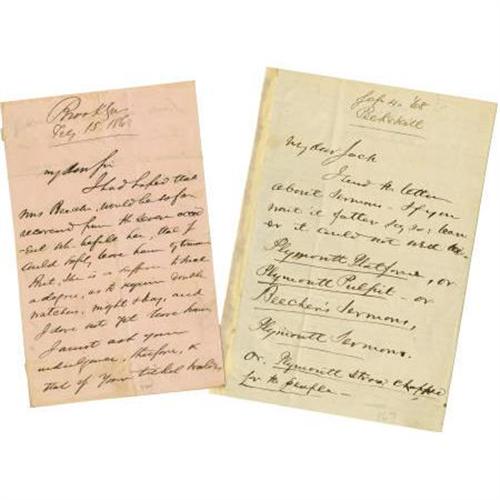 Brooklyn
Feby 15. 186
my dear Sir
I had hoped that
Mrs Beecher, would be so far
recovered from the severe accid
-ent wh. befell her, that I
could safely leave home
But, she is a sufferer to such
a degree, as to require double
watches, night & day, and
I dare not yet leave home
I must ask your
indulgence, therefore, &
that of your ticket holders
Sep 4. '68
Peekskill
My dear Jack
I send the letter
about Sermons - If you
want it fatter say so; lean
er it could not well be.
Plymouth Platform, or
Plymouth Pulpit - or
Beecher's Sermons,
Plymouth Sermons.
or. Plymouth chopped
for the people -
167